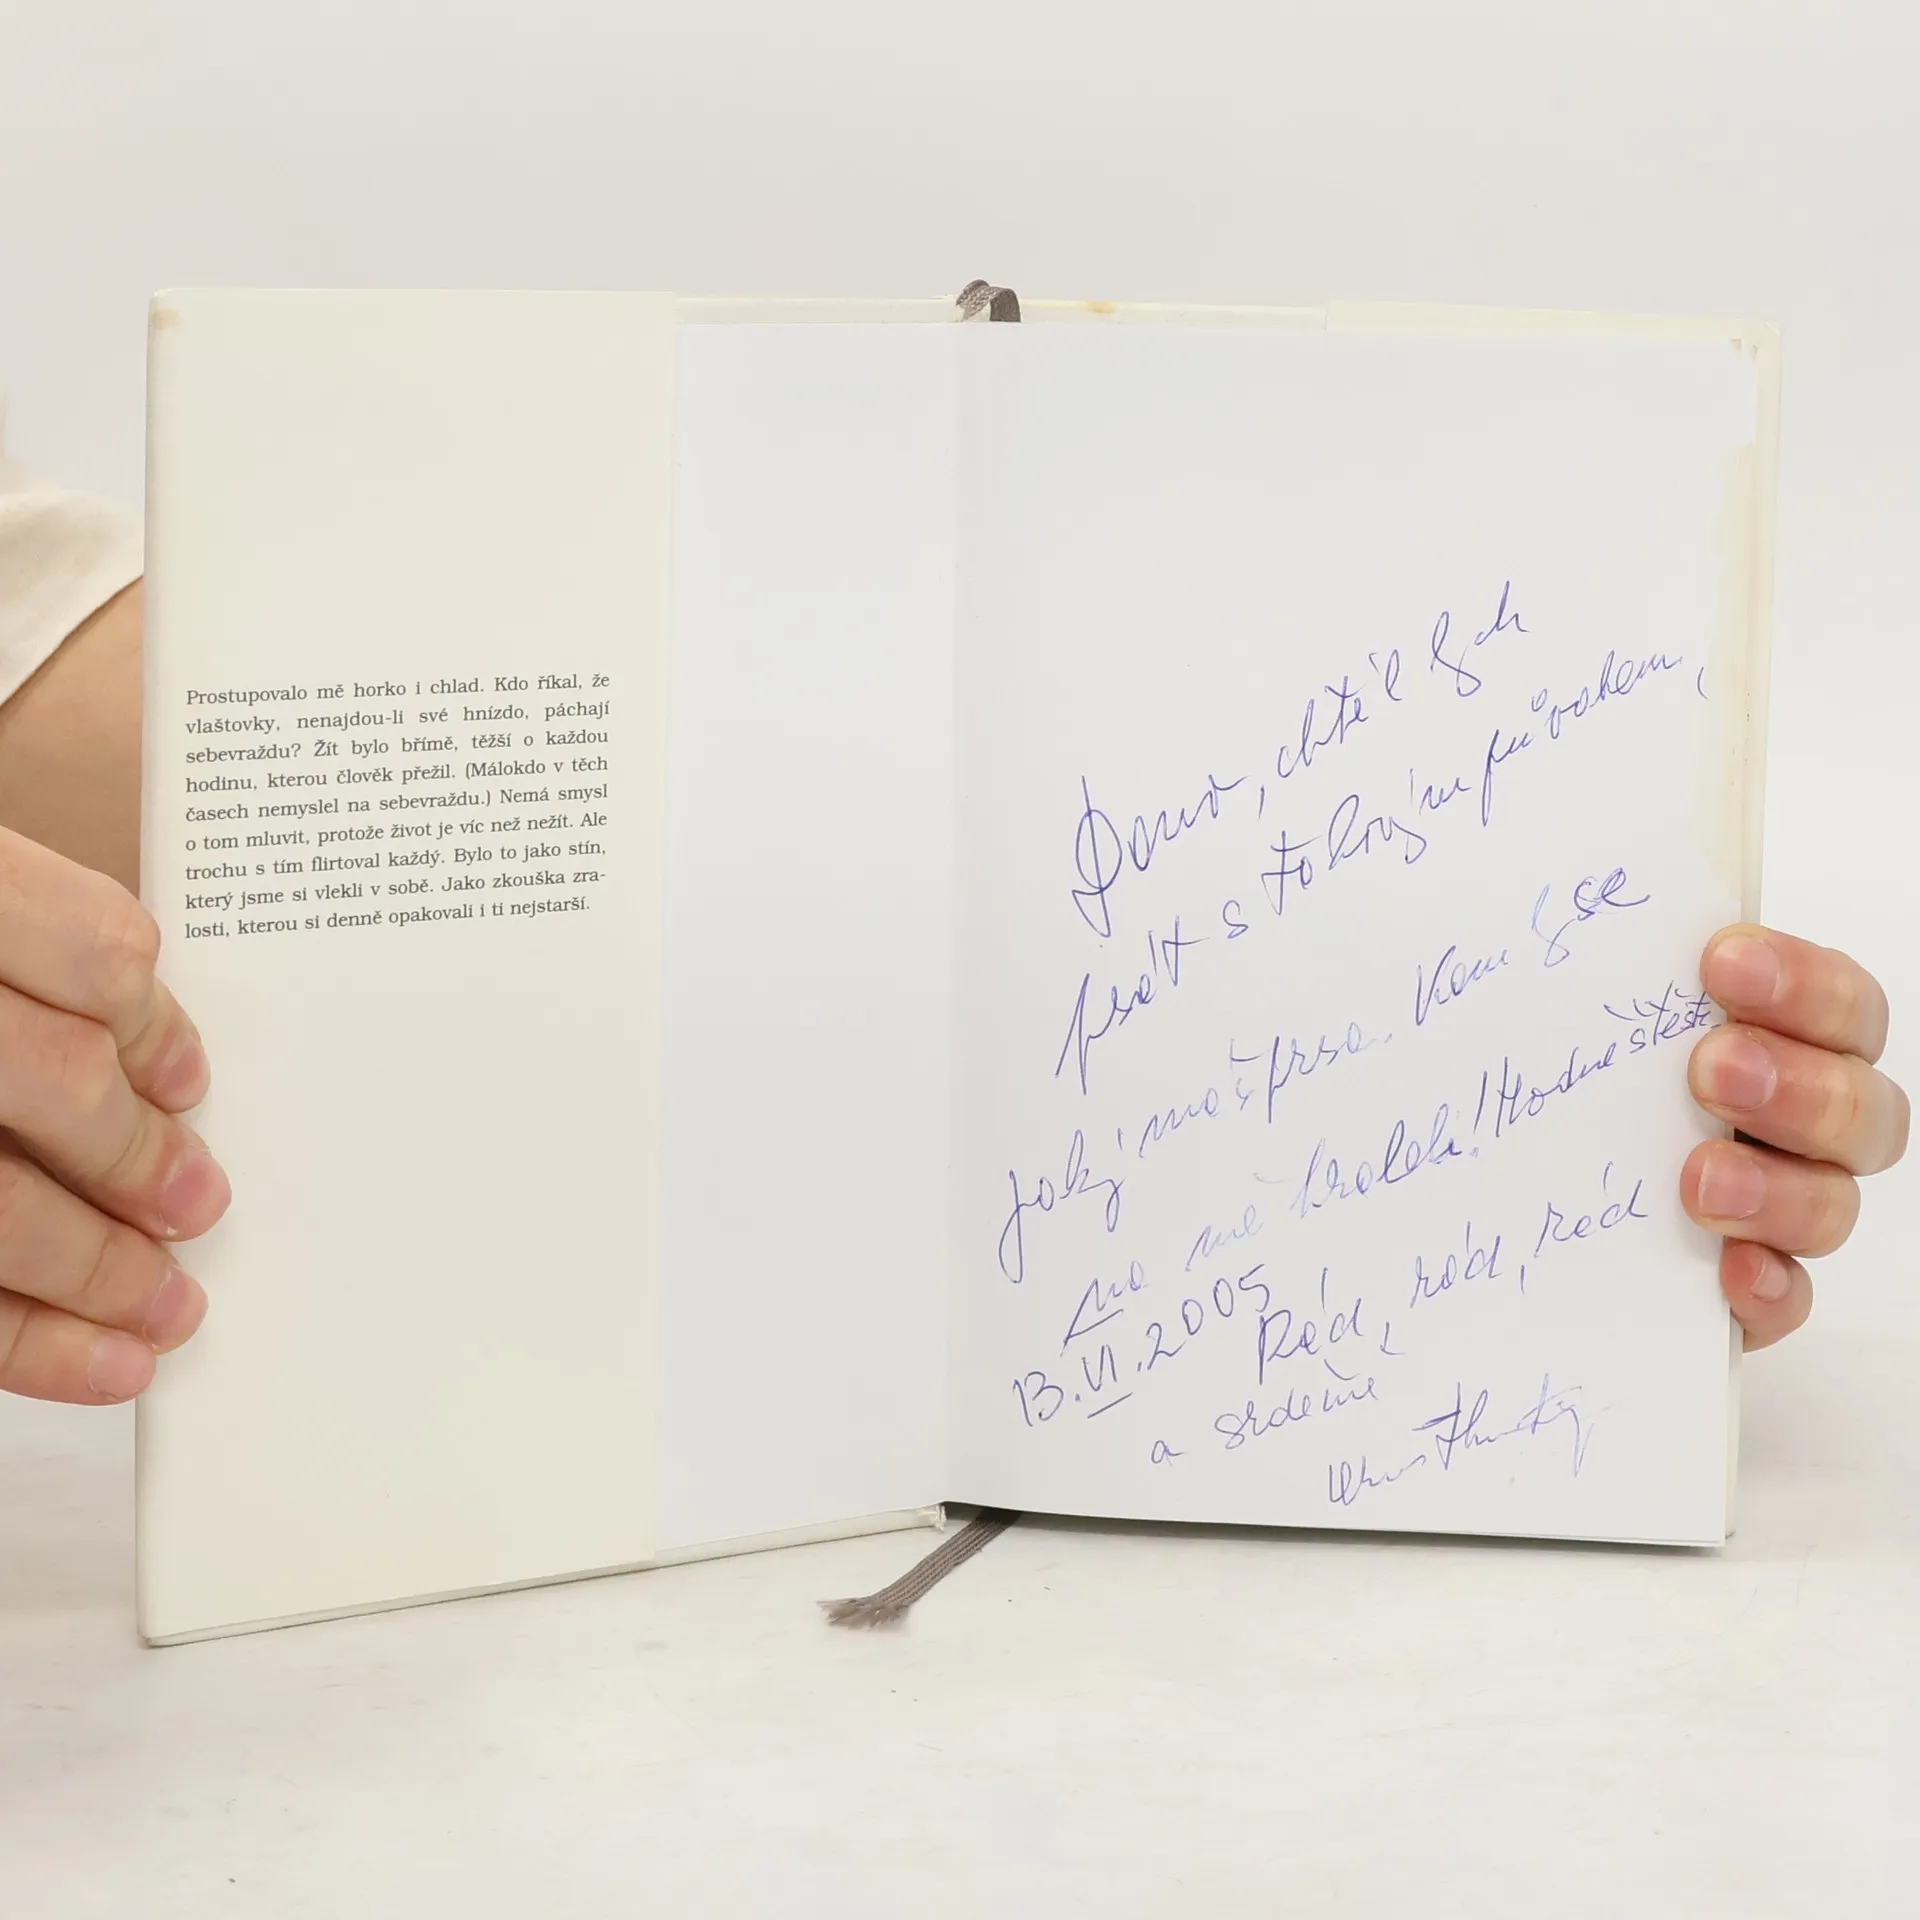 Prostupovalo mě horko i chlad. Kdo říkal, že
vlaštovky, nenajdou-li své hnízdo, páchají
sebevraždu? Žít bylo břímě, těžší o každou
hodinu, kterou člověk přežil. (Málokdo v těch
časech nemyslel na sebevraždu.) Nemá smysl
o tom mluvit, protože život je víc než nežít. Ale
trochu s tím flirtoval každý. Bylo to jako stín,
který jsme si vlekli v sobě. Jako zkouška zra-
losti, kterou si denně opakovali i ti nejstarší.
, chtěl bych
psát s takovým půvabem,
jaký máš prsa. Kéž by se
na mě hrabala! Hodně štěstí
13.VI.2005
Rád, rád, rád
a srdečně